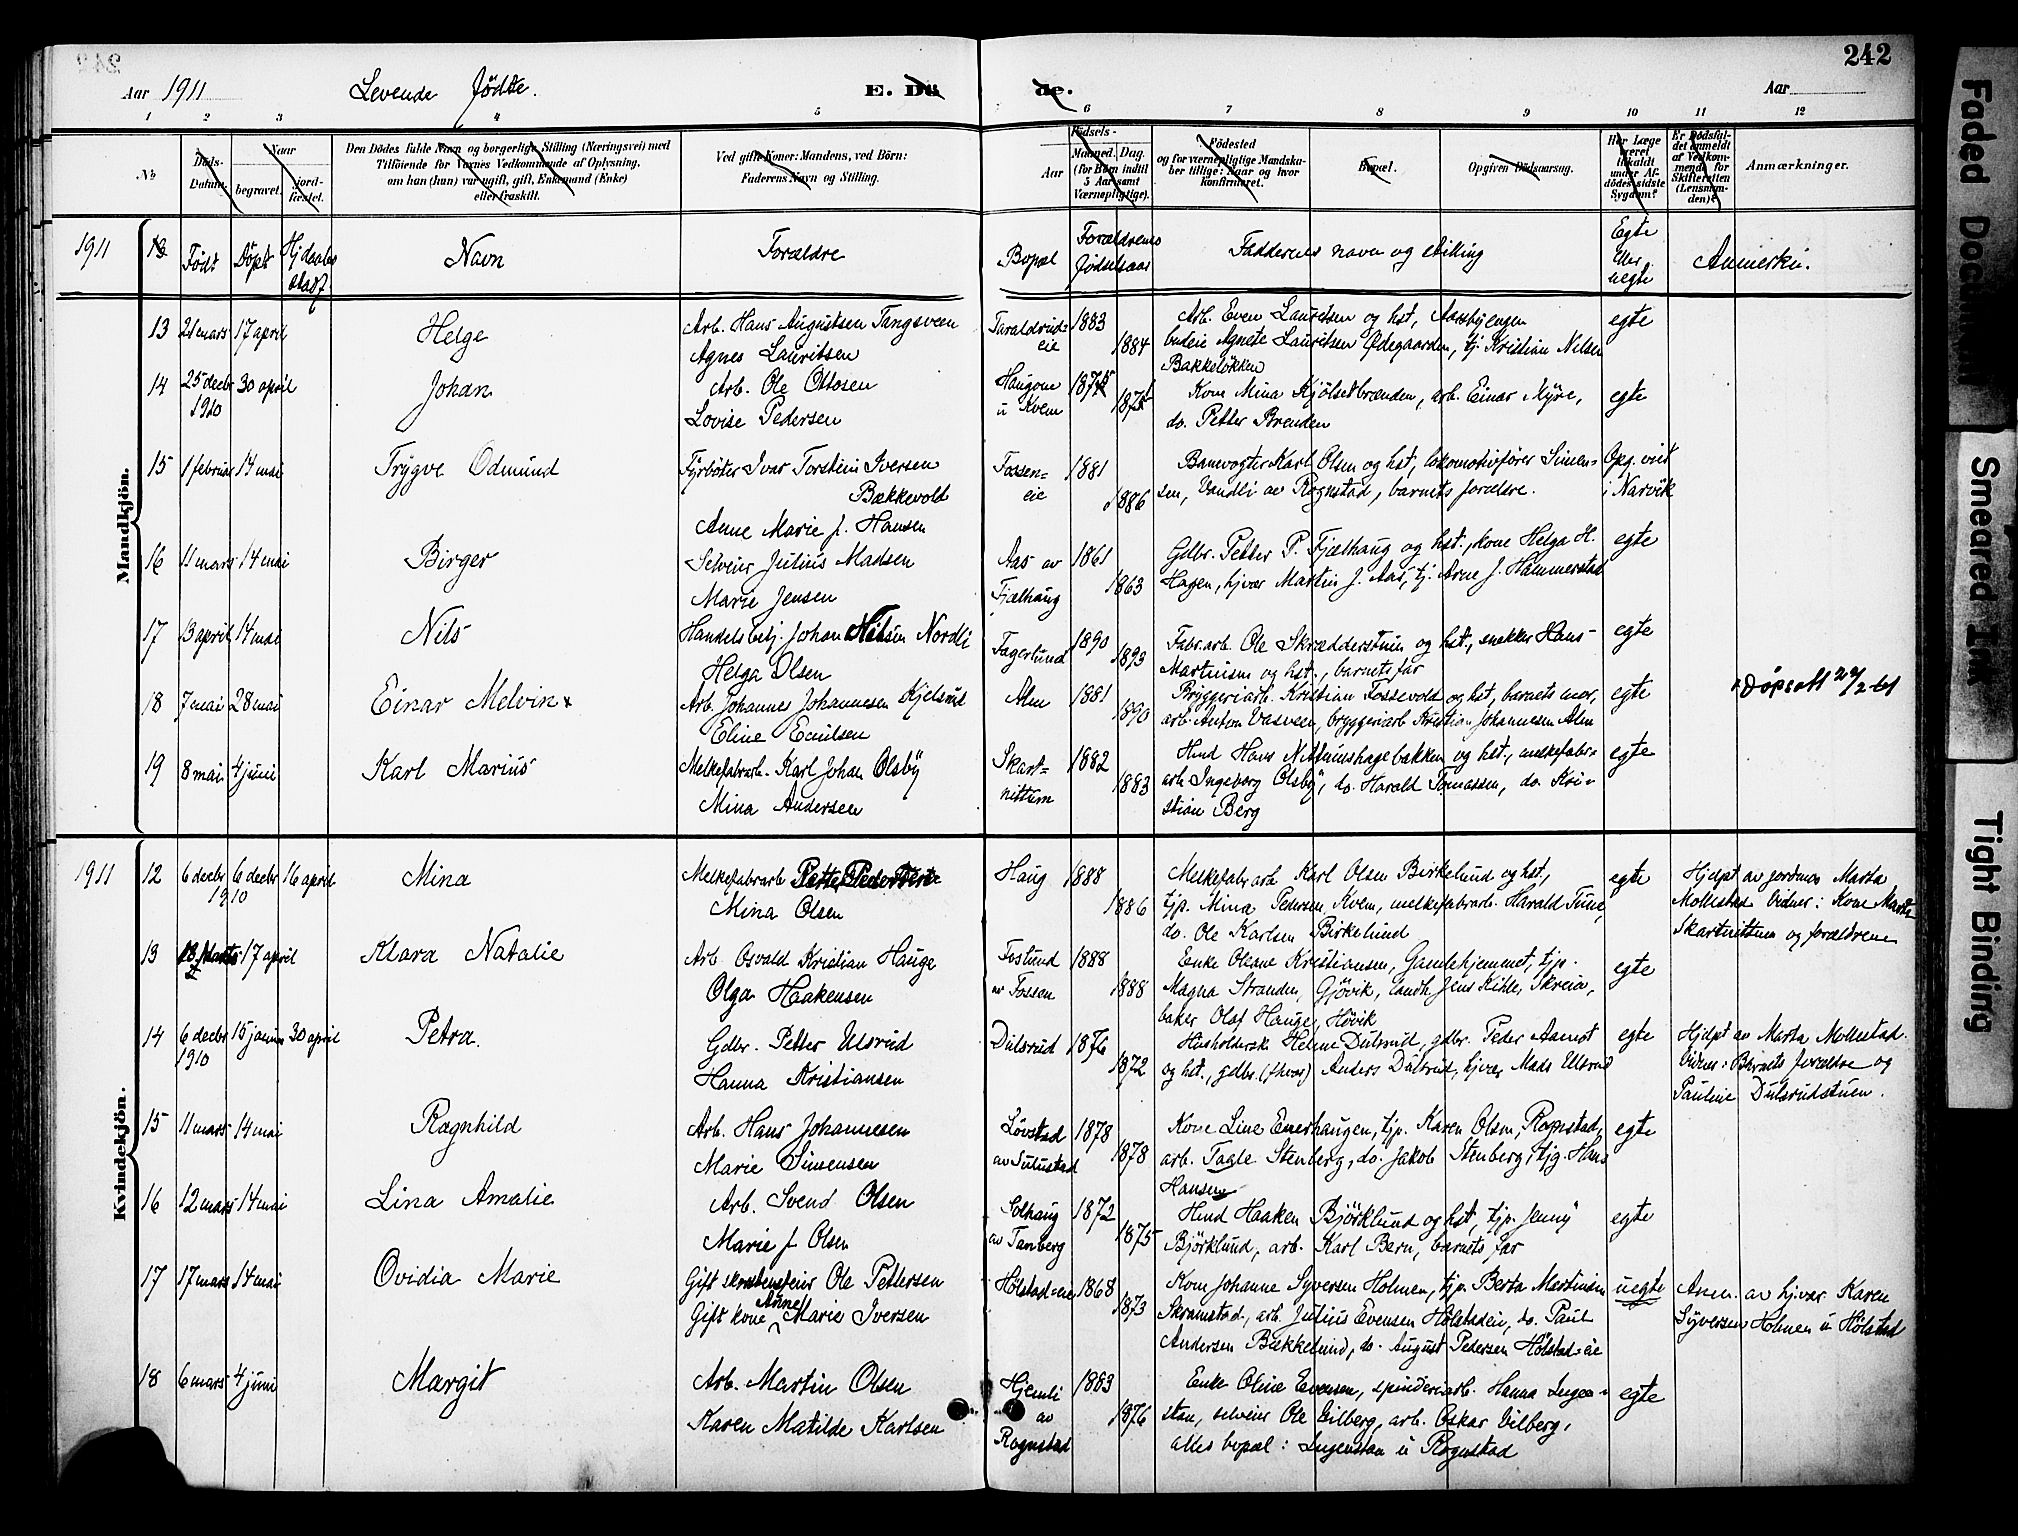 242
Aar 1911 Levende fødte. E. Dö de. Aar
1 2 3 4 5 6 7 8 9 10 11 12
No Döds-Datum. Naar begravet. jord-fæstet. Den Dödes fulde Navn og borgerlige Stilling (Næringsvei) med Tilföiende for Voxnes Vedkommende af Oplysning, om han (hun) var ugift, gift, Enkemand (Enke) eller fraskilt. Ved gifte Koner: Mandens, ved Börn: Faderens Navn og Stilling. Aar Födsels- Maaned. Dag. (for Börn indtil 5 Aar samt Værnepligtige). Födested og for værnepligtige Mandskaber tillige: Naar og hvor konfirmeret. Bopæl. Opgiven Dödsaarsag. Har Læge været tilkaldt under Afdödes sidste Sygdom? Er Dödsfaldet anmeldt af Vedkommende for Skifteretten (Lensmanden)? Anmærkninger.
1911 Født Döpt Hjdaabs stadf. Navn Forældre Bopæl Forældrenes fødselsaar Faddernes navn og stilling Egte eller uegte Anmerkn.
Mandkjön.
13 21 mars 17 april Helge Arb. Hans Augustsen Tangsveen Taraldrud= 1883 Arb. Even Lauritsen og hst, egte
Agnes Lauritsen eie 1884 budeie Agnete Lauritsen Ødegaarden, tj. Kristian Nilsen
Bakkeløkken
14 25 decbr 30 april Johan Arb. Ole Ottosen Haugom Kone Mina Kjölsetbrænden, arb. Einar Myre, egte
1910 Lovise Pedersen u Kvem do. Petter Brenden
15 1 februar 14 mai Trygve Odmund Fyrböter Ivar Torstein Iversen Fossen= 1881 Banevogter Karl Olsen og hst, lokomotivförer Simen= Opg. viet
Bækkevold eie 1886 sen, Vandli av Rognstad, barnets forældre. i Narvik
Anne Marie f. Hansen
16 11 mars 14 mai Birger Selveier Julius Madsen Aas av 1861 Gdbr. Petter P. Fjælhaug og hst., kone Helga H. egte
Marie Jensen Fjælhaug 1863 Hagen, hjvær Martin J. Aas, tj. Arne J. Hammerstad
17 13 april 14 mai Nils Handelsbetj. Johan Nilsen Nordli Fagerlund 1890 Fabr.arb. Ole Skrædderstuen og hst., snekker Hans egte
Helga Olsen 1893 Martinsen og hst., barnets far
18 7 mai 28 mai Einar Melvin x Arb. Johannes Johannesen Kjelsrud Alm 1881 Bryggeriarb. Kristian Fossevold og hst, barnets mor, egte x Döpsatt 27/2-61
Eline Emilsen 1890 arb. Anton Vasveen, bryggeriarb Kristian Johannesen Alm
19 8 mai 4 juni Karl Marius Melkefabrarb. Karl Johan Olsby Skart= 1882 Hmd Hans Nittumshagebakken og hst, melkefabr= egte
Mina Andersen nittum 1883 arb Ingeborg Olsby, do. Harald Tomassen, do. Kri=
stian Berg
Kvindekjön.
1911 12 6 decbr 6 decbr 16 april Mina Melkefabrarb Petter Pedersen Haug 1888 Melkefabrarb Karl Olsen Birkelund og hst, egte Hjdpt av jordmor Marta
1910 Mina Olsen 1886 tjp. Mina Pedersen Kvem, melkefabrarb. Harald Tune, Mollestad Vidner: Kone Marta
do. Ole Karlsen Birkelund Skartnittum og forældrene
13 18 Marts 17 april Klara Natalie Arb. Osvald Kristian Hauge Foslund 1888 Enke Oleane Kristiansen, Gamlehjemmet, tjp. egte
Olga Haakensen av Fossen 1888 Magna Stranden, Gjövik, landh. Jens Kihle, Skreia,
baker Olaf Hauge, Hövik
14 6 decbr 15 januar 30 april Petra. Gdbr. Petter Ulsrud Dulsrud 1876 Husholderske Helene Dulsrud, gdbr. Peder Aamot egte Hjdpt av Marta Mollestad.
1910 Hanna Kristiansen 1872 og hst., gdbr. (fhvær) Anders Dulsrud, hjvær Mads Ulsrud Vidner: Barnets forældre og
Pauline Dulsrudstuen.
15 11 mars 14 mai Ragnhild Arb. Hans Johannesen Lövstad 1878 Kone Line Enerhaugen, tjp. Karen Olsen, Rognstad, egte
Marie Simensen av Sulustad 1878 arb. Tagle Stenberg, do. Jakob Stenberg, tjg. Hans
Hansen
16 12 mars 14 mai Lina Amalie Arb. Svend Olsen Solhaug 1872 Hmd Haaken Björklund og hst, tjp. Jenny egte
Marie f Olsen av Tanberg 1875 Björklund, arb. Karl Bern, barnets far
17 17 mars 14 mai Ovidia Marie Gift skorstensfeier Ole Pettersen Hölstad=eie 1868 Kone Johanne Syversen Holmen, tjp. Berta Martinsen uegte Anm. av hjvar. Karen
Gift kone Anne Marie Iversen 1873 Skramstad, arb. Julius Evensen Hölstadeie, do. Paul Syversen Holmen u Hölstad
Andersen Bækkelund, do. August Pedersen Hölstad=eie
18 6 mars 4 juni Margit Arb. Martin Olsen Hjemli 1883 Enke Oline Evensen, spinderiarb. Hanna Lugen= egte
Karen Matilde Karlsen av 1876 staa, selveier Ole Vilberg, arb. Oskar Vilberg,
Rognstad alles bopæl: Lugenstaa u Rognstad
Faded Document
Smeared Ink
Tight Binding